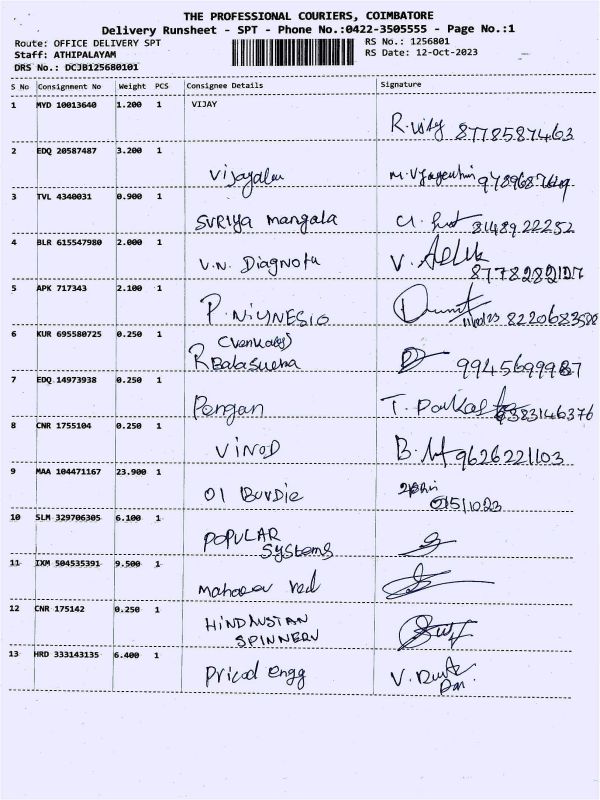 THE PROFESSIONAL COURIERS, COIMBATORE
Delivery Runsheet - SPT - Phone No.:0422-3505555 - Page No.:1
Route: OFFICE DELIVERY SPT
Staff: ATHIPALAYAM
DRS No.: DCJB125680101
RS No.: 1256801
RS Date: 12-Oct-2023
S No Consignment No Weight PCS Consignee Details Signature
1 MYD 10013640 1.200 1 VIJAY
8778587463
2 EDQ 20587487 3.200 1
3 TVL 4340031 0.900 1
SURIYA mangala 8148922252
4 BLR 615547980 2.000 1
V.N. Diagnota V.
5 APK 717343 2.100 1
8220683588
6 KUR 695580725 0.250 1
(Venkatesj)
9945699987
7 EDQ 14973938 0.250 1
Pengan T.
8 CNR 1755104 0.250 1
VINOD B. 9626221103
9 MAA 104471167 23.900 1
10 SLM 329706305 6.100 1
POPULAR
Systems
11 IXM 504535391 9.500 1
12 CNR 175142 0.250 1
HINDUSTAN
SPINNERV
13 HRD 333143135 6.400 1
Pricol engg V.